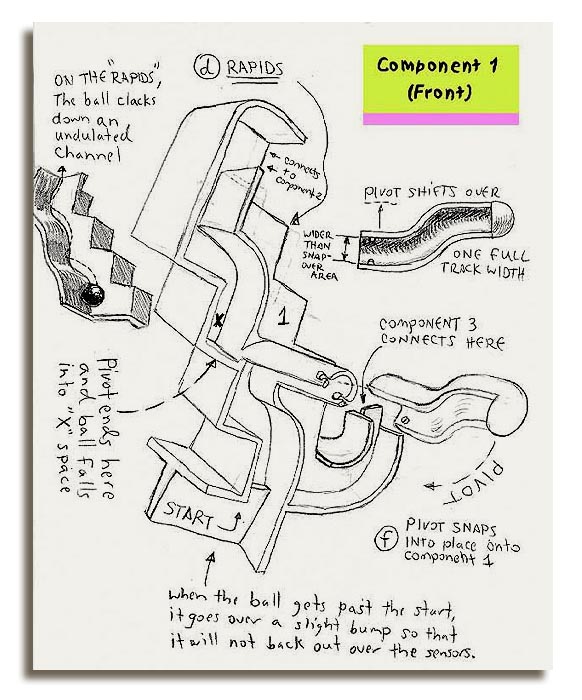 Component 1
(Front)
ON THE "RAPIDS",
The ball clacks
down an
undulated
Channel
d RAPIDS
connects
to
component 2
PIVOT SHIFTS OVER
WIDER
THAN
SNAP-
OVER
AREA
ONE FULL
TRACK WIDTH
X
1
COMPONENT 3
CONNECTS HERE
Pivot ends here
and ball falls
into "X" space
PIVOT
START
f PIVOT SNAPS
INTO place onto
component 1
when the ball gets past the start,
it goes over a slight bump so that
it will not back out over the sensors.